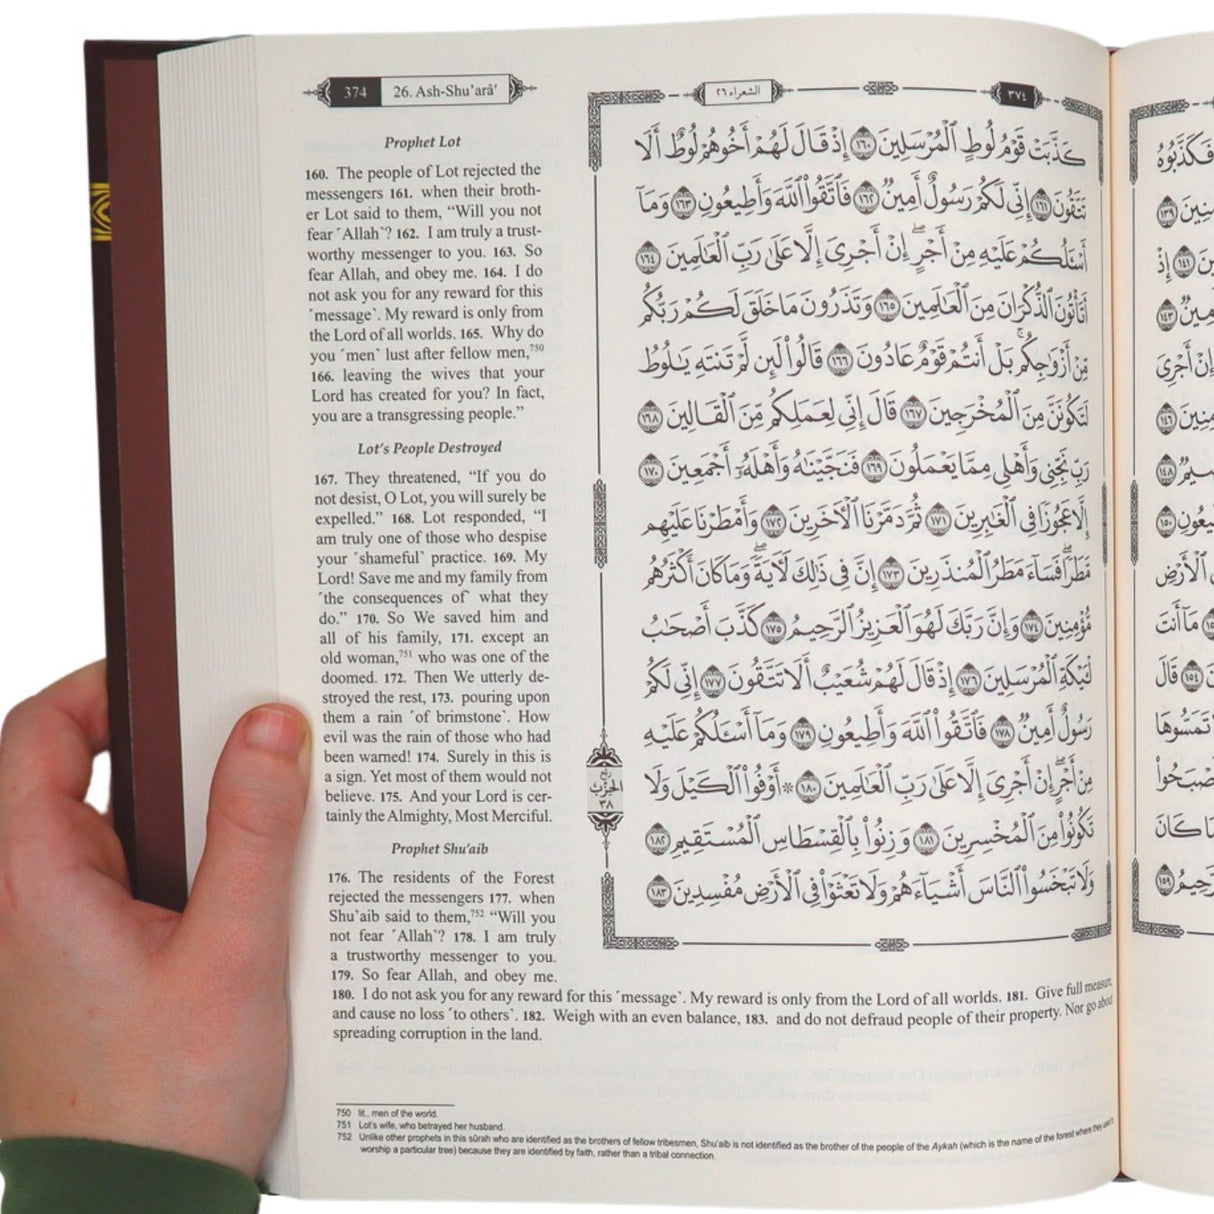 374 26. Ash-Shu’arâ’
Prophet Lot
160. The people of Lot rejected the
messengers 161. when their broth-
er Lot said to them, “Will you not
fear ˹Allah˺? 162. I am truly a trust-
worthy messenger to you. 163. So
fear Allah, and obey me. 164. I do
not ask you for any reward for this
˹message˺. My reward is only from
the Lord of all worlds. 165. Why do
you ˹men˺ lust after fellow men,750
166. leaving the wives that your
Lord has created for you? In fact,
you are a transgressing people.”
Lot’s People Destroyed
167. They threatened, “If you do
not desist, O Lot, you will surely be
expelled.” 168. Lot responded, “I
am truly one of those who despise
your ˹shameful˺ practice. 169. My
Lord! Save me and my family from
˹the consequences of˺ what they
do.” 170. So We saved him and
all of his family, 171. except an
old woman,751 who was one of the
doomed. 172. Then We utterly de-
stroyed the rest, 173. pouring upon
them a rain ˹of brimstone˺. How
evil was the rain of those who had
been warned! 174. Surely in this is
a sign. Yet most of them would not
believe. 175. And your Lord is cer-
tainly the Almighty, Most Merciful.
Prophet Shu’aib
176. The residents of the Forest
rejected the messengers 177. when
Shu’aib said to them,752 “Will you
not fear ˹Allah˺? 178. I am truly
a trustworthy messenger to you.
179. So fear Allah, and obey me.
180. I do not ask you for any reward for this ˹message˺. My reward is only from the Lord of all worlds. 181. Give full measure,
and cause no loss ˹to others˺. 182. Weigh with an even balance, 183. and do not defraud people of their property. Nor go about
spreading corruption in the land.
750 lit., men of the world.
751 Lot’s wife, who betrayed her husband.
752 Unlike other prophets in this sûrah who are identified as the brothers of fellow tribesmen, Shu’aib is not identified as the brother of the people of the Aykah (which is the name of the forest where they used to
worship a particular tree) because they are identified by faith, rather than a tribal connection.
٣٧٤ الشعراء ٢٦
كَذَّبَتْ قَوْمُ لُوطٍ ٱلْمُرْسَلِينَ ١٦٠ إِذْ قَالَ لَهُمْ أَخُوهُمْ لُوطٌ أَلَا
تَتَّقُونَ ١٦١ إِنِّى لَكُمْ رَسُولٌ أَمِينٌ ١٦٢ فَٱتَّقُوا۟ ٱللَّهَ وَأَطِيعُونِ ١٦٣ وَمَآ
أَسْـَٔلُكُمْ عَلَيْهِ مِنْ أَجْرٍ ۖ إِنْ أَجْرِىَ إِلَّا عَلَىٰ رَبِّ ٱلْعَـٰلَمِينَ ١٦٤
أَتَأْتُونَ ٱلذُّكْرَانَ مِنَ ٱلْعَـٰلَمِينَ ١٦٥ وَتَذَرُونَ مَا خَلَقَ لَكُمْ رَبُّكُم
مِّنْ أَزْوَٰجِكُم ۚ بَلْ أَنتُمْ قَوْمٌ عَادُونَ ١٦٦ قَالُوا۟ لَئِن لَّمْ تَنتَهِ يَـٰلُوطُ
لَتَكُونَنَّ مِنَ ٱلْمُخْرَجِينَ ١٦٧ قَالَ إِنِّى لِعَمَلِكُم مِّنَ ٱلْقَالِينَ ١٦٨
رَبِّ نَجِّنِى وَأَهْلِى مِمَّا يَعْمَلُونَ ١٦٩ فَنَجَّيْنَـٰهُ وَأَهْلَهُۥٓ أَجْمَعِينَ ١٧٠
إِلَّا عَجُوزًا فِى ٱلْغَـٰبِرِينَ ١٧١ ثُمَّ دَمَّرْنَا ٱلْـَٔاخَرِينَ ١٧٢ وَأَمْطَرْنَا عَلَيْهِم
مَّطَرًا ۖ فَسَآءَ مَطَرُ ٱلْمُنذَرِينَ ١٧٣ إِنَّ فِى ذَٰلِكَ لَـَٔايَةً ۖ وَمَا كَانَ أَكْثَرُهُم
مُّؤْمِنِينَ ١٧٤ وَإِنَّ رَبَّكَ لَهُوَ ٱلْعَزِيزُ ٱلرَّحِيمُ ١٧٥ كَذَّبَ أَصْحَـٰبُ
لْـَٔيْكَةِ ٱلْمُرْسَلِينَ ١٧٦ إِذْ قَالَ لَهُمْ شُعَيْبٌ أَلَا تَتَّقُونَ ١٧٧ إِنِّى لَكُمْ
رَسُولٌ أَمِينٌ ١٧٨ فَٱتَّقُوا۟ ٱللَّهَ وَأَطِيعُونِ ١٧٩ وَمَآ أَسْـَٔلُكُمْ عَلَيْهِ
مِنْ أَجْرٍ ۖ إِنْ أَجْرِىَ إِلَّا عَلَىٰ رَبِّ ٱلْعَـٰلَمِينَ ١٨٠ ۞ أَوْفُوا۟ ٱلْكَيْلَ وَلَا
تَكُونُوا۟ مِنَ ٱلْمُخْسِرِينَ ١٨١ وَزِنُوا۟ بِٱلْقِسْطَاسِ ٱلْمُسْتَقِيمِ ١٨٢
وَلَا تَبْخَسُوا۟ ٱلنَّاسَ أَشْيَآءَهُمْ وَلَا تَعْثَوْا۟ فِى ٱلْأَرْضِ مُفْسِدِينَ ١٨٣
ربع
الحزب
٣٨
فَكَذَّبُوهُ
١٣٩
١٤١ إِذْ
١٤٣
إِنْ أَجْرِىَ
١٤٦
١٤٨
١٥٠
ٱلْأَرْضِ
مَآ أَنتَ
١٥٤ قَالَ
تَمَسُّوهَا
كَانَ
١٥٩